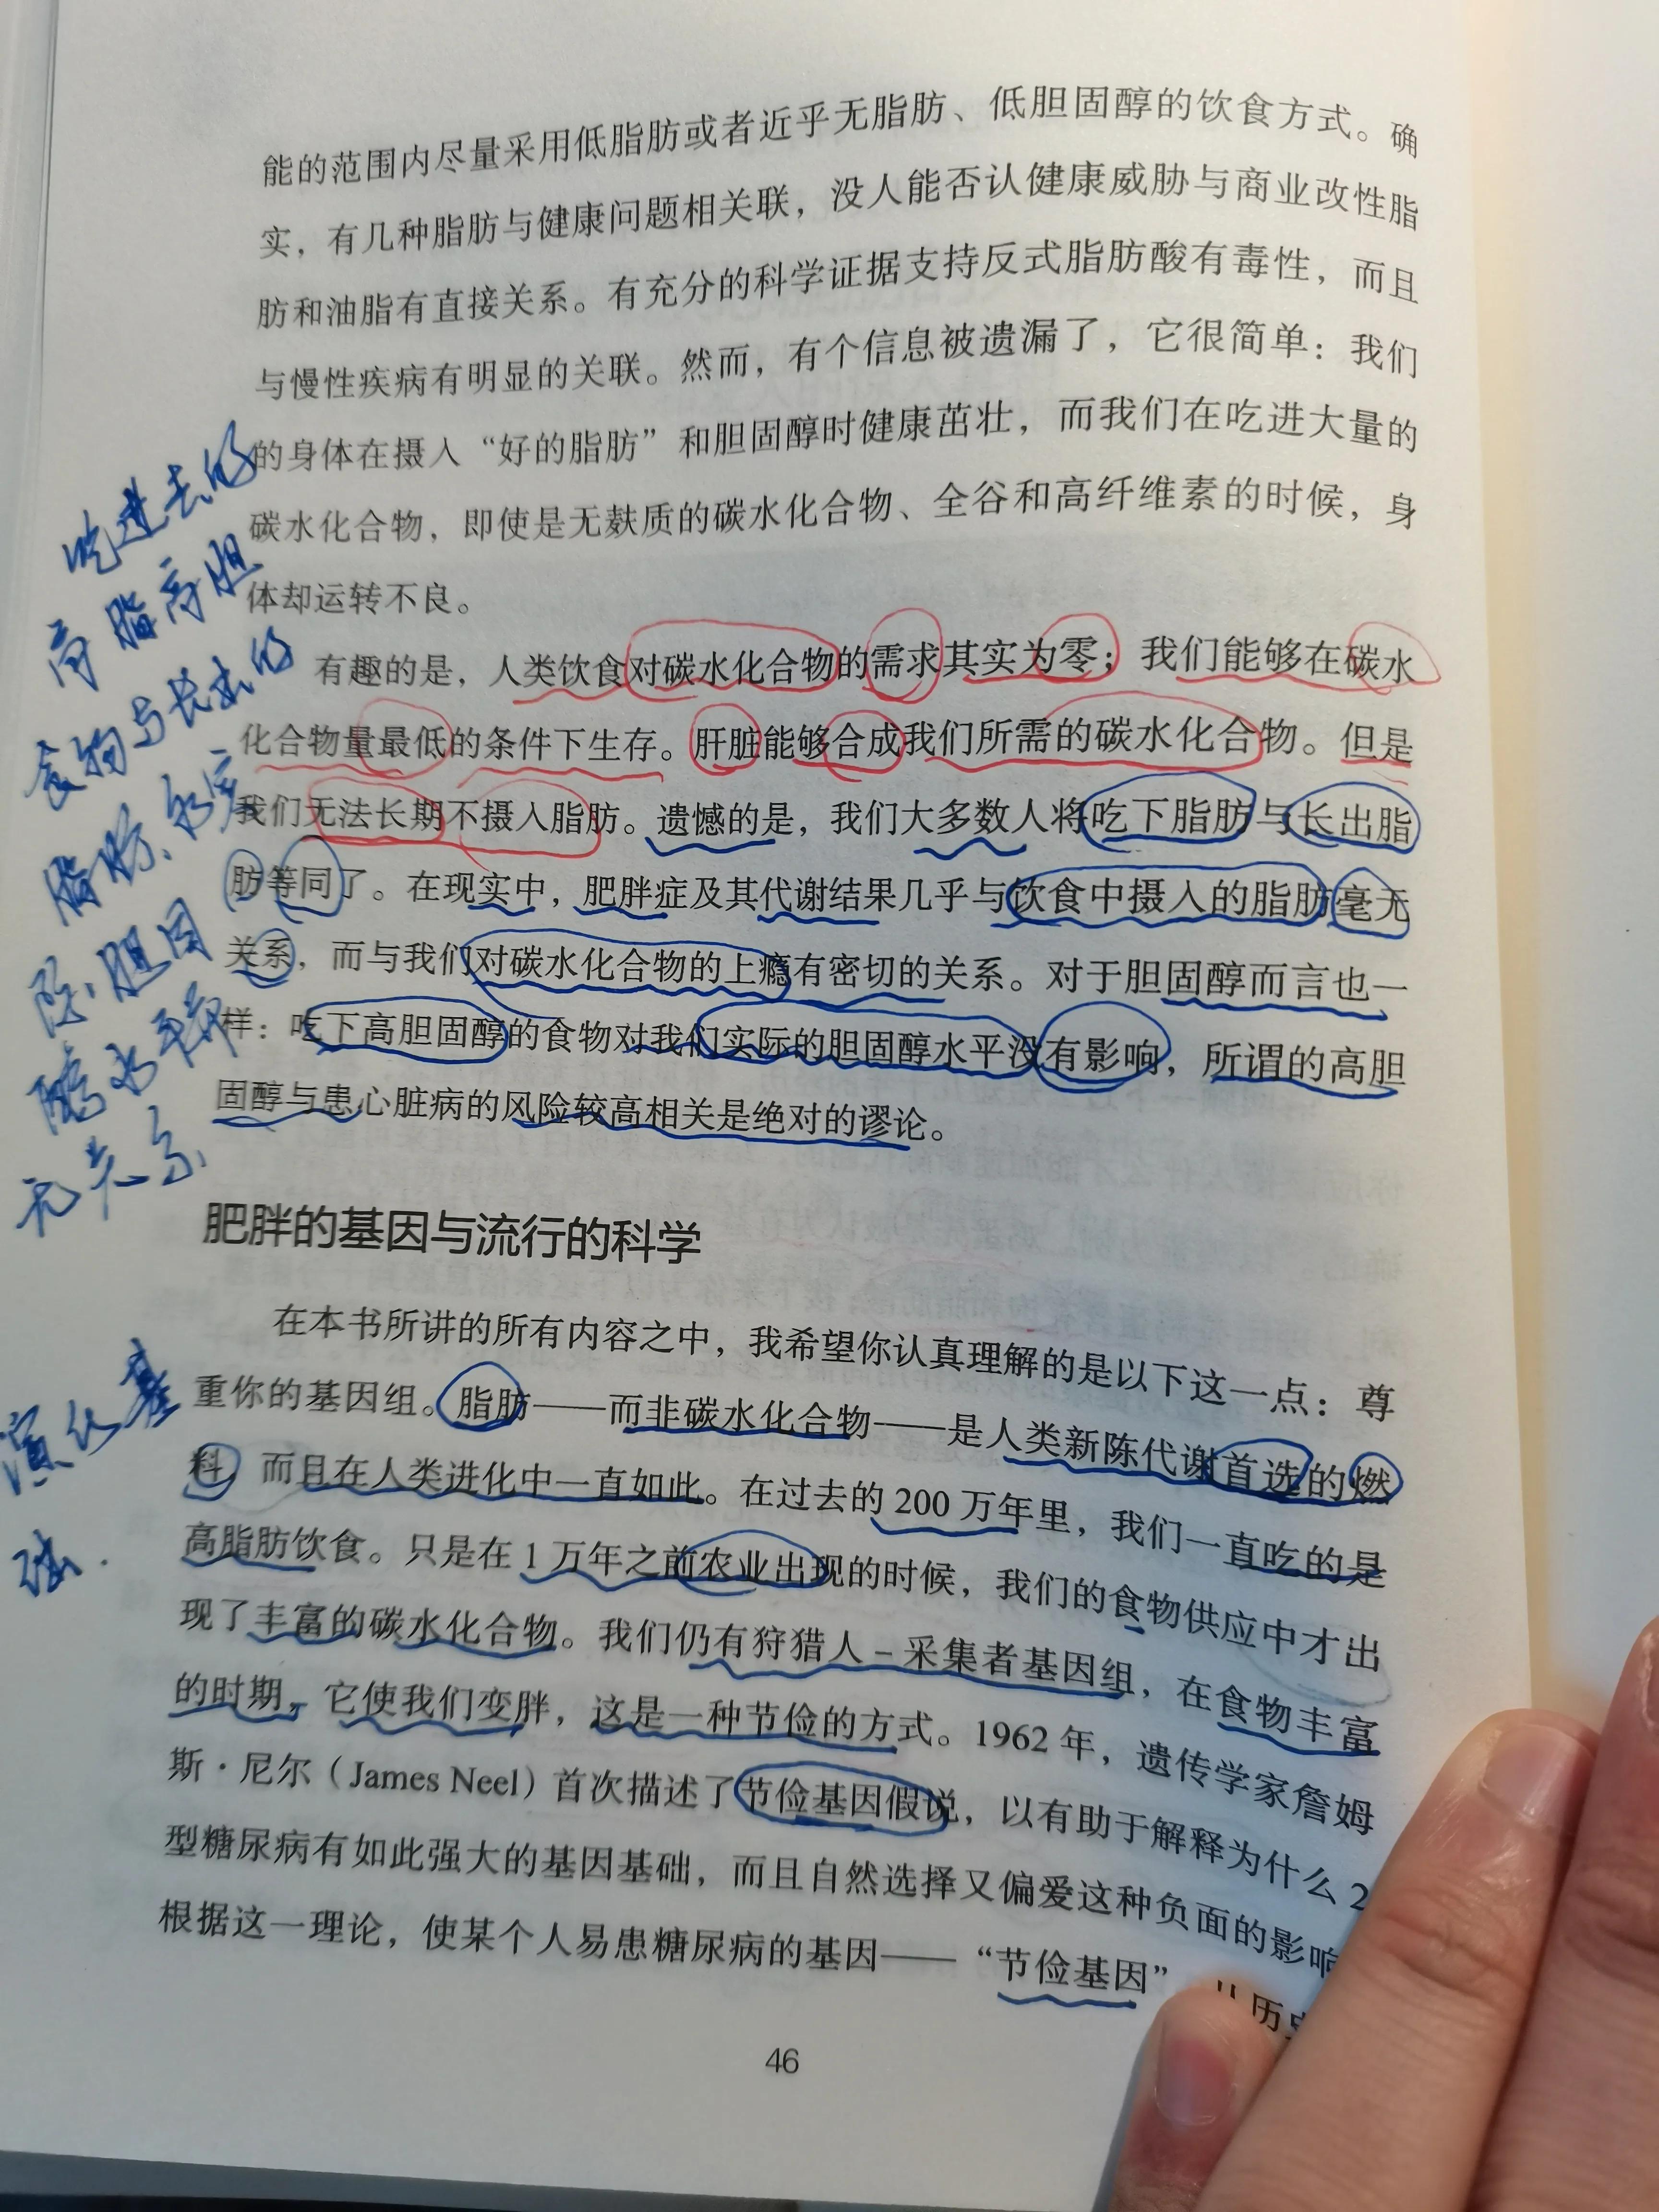 能的范围内尽量采用低脂肪或者近乎无脂肪、低胆固醇的饮食方式。确
实，有几种脂肪与健康问题相关联，没人能否认健康威胁与商业改性脂
肪和油脂有直接关系。有充分的科学证据支持反式脂肪酸有毒性，而且
与慢性疾病有明显的关联。然而，有个信息被遗漏了，它很简单：我们
的身体在摄入“好的脂肪”和胆固醇时健康茁壮，而我们在吃进大量的
碳水化合物，即使是无麸质的碳水化合物、全谷和高纤维素的时候，身
体却运转不良。
有趣的是，人类饮食对碳水化合物的需求其实为零；我们能够在碳水
化合物量最低的条件下生存。肝脏能够合成我们所需的碳水化合物。但是
我们无法长期不摄入脂肪。遗憾的是，我们大多数人将吃下脂肪与长出脂
肪等同了。在现实中，肥胖症及其代谢结果几乎与饮食中摄入的脂肪毫无
关系，而与我们对碳水化合物的上瘾有密切的关系。对于胆固醇而言也一
样：吃下高胆固醇的食物对我们实际的胆固醇水平没有影响，所谓的高胆
固醇与患心脏病的风险较高相关是绝对的谬论。
吃进去的
高脂高胆
食物与长出的
脂肪、
胆固
醇水平
无关系
肥胖的基因与流行的科学
在本书所讲的所有内容之中，我希望你认真理解的是以下这一点：尊
重你的基因组。脂肪——而非碳水化合物——是人类新陈代谢首选的燃
料，而且在人类进化中一直如此。在过去的 200 万年里，我们一直吃的是
高脂肪饮食。只是在 1 万年之前农业出现的时候，我们的食物供应中才出
现了丰富的碳水化合物。我们仍有狩猎人–采集者基因组，在食物丰富
的时期，它使我们变胖，这是一种节俭的方式。1962 年，遗传学家詹姆
斯·尼尔（James Neel）首次描述了节俭基因假说，以有助于解释为什么 2
型糖尿病有如此强大的基因基础，而且自然选择又偏爱这种负面的影响
根据这一理论，使某个人易患糖尿病的基因——“节俭基因” 历
演化基
46